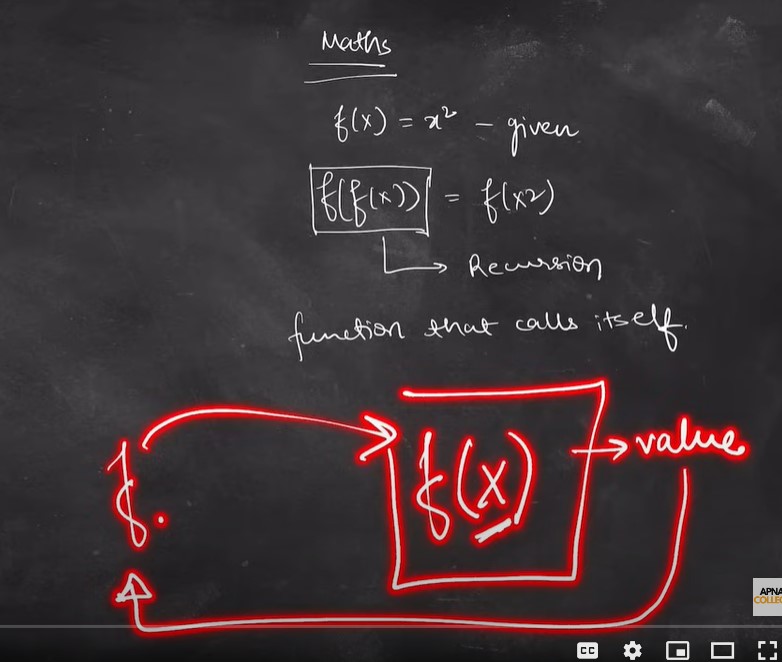 Maths
f(x) = x² - given
f(f(x)) = f(x2)
Recursion
function that calls itself.
f. f(x) → value
APNA
COLLEG
CC